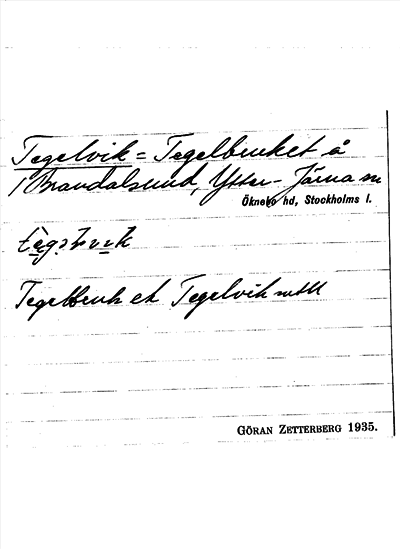 Tegelvik = Tegelbruket å
Brandalsund, Ytter-Järna sn
Öknebo hd, Stockholms l.
Tegelbruk et Tegelvik
GÖRAN ZETTERBERG 1935.